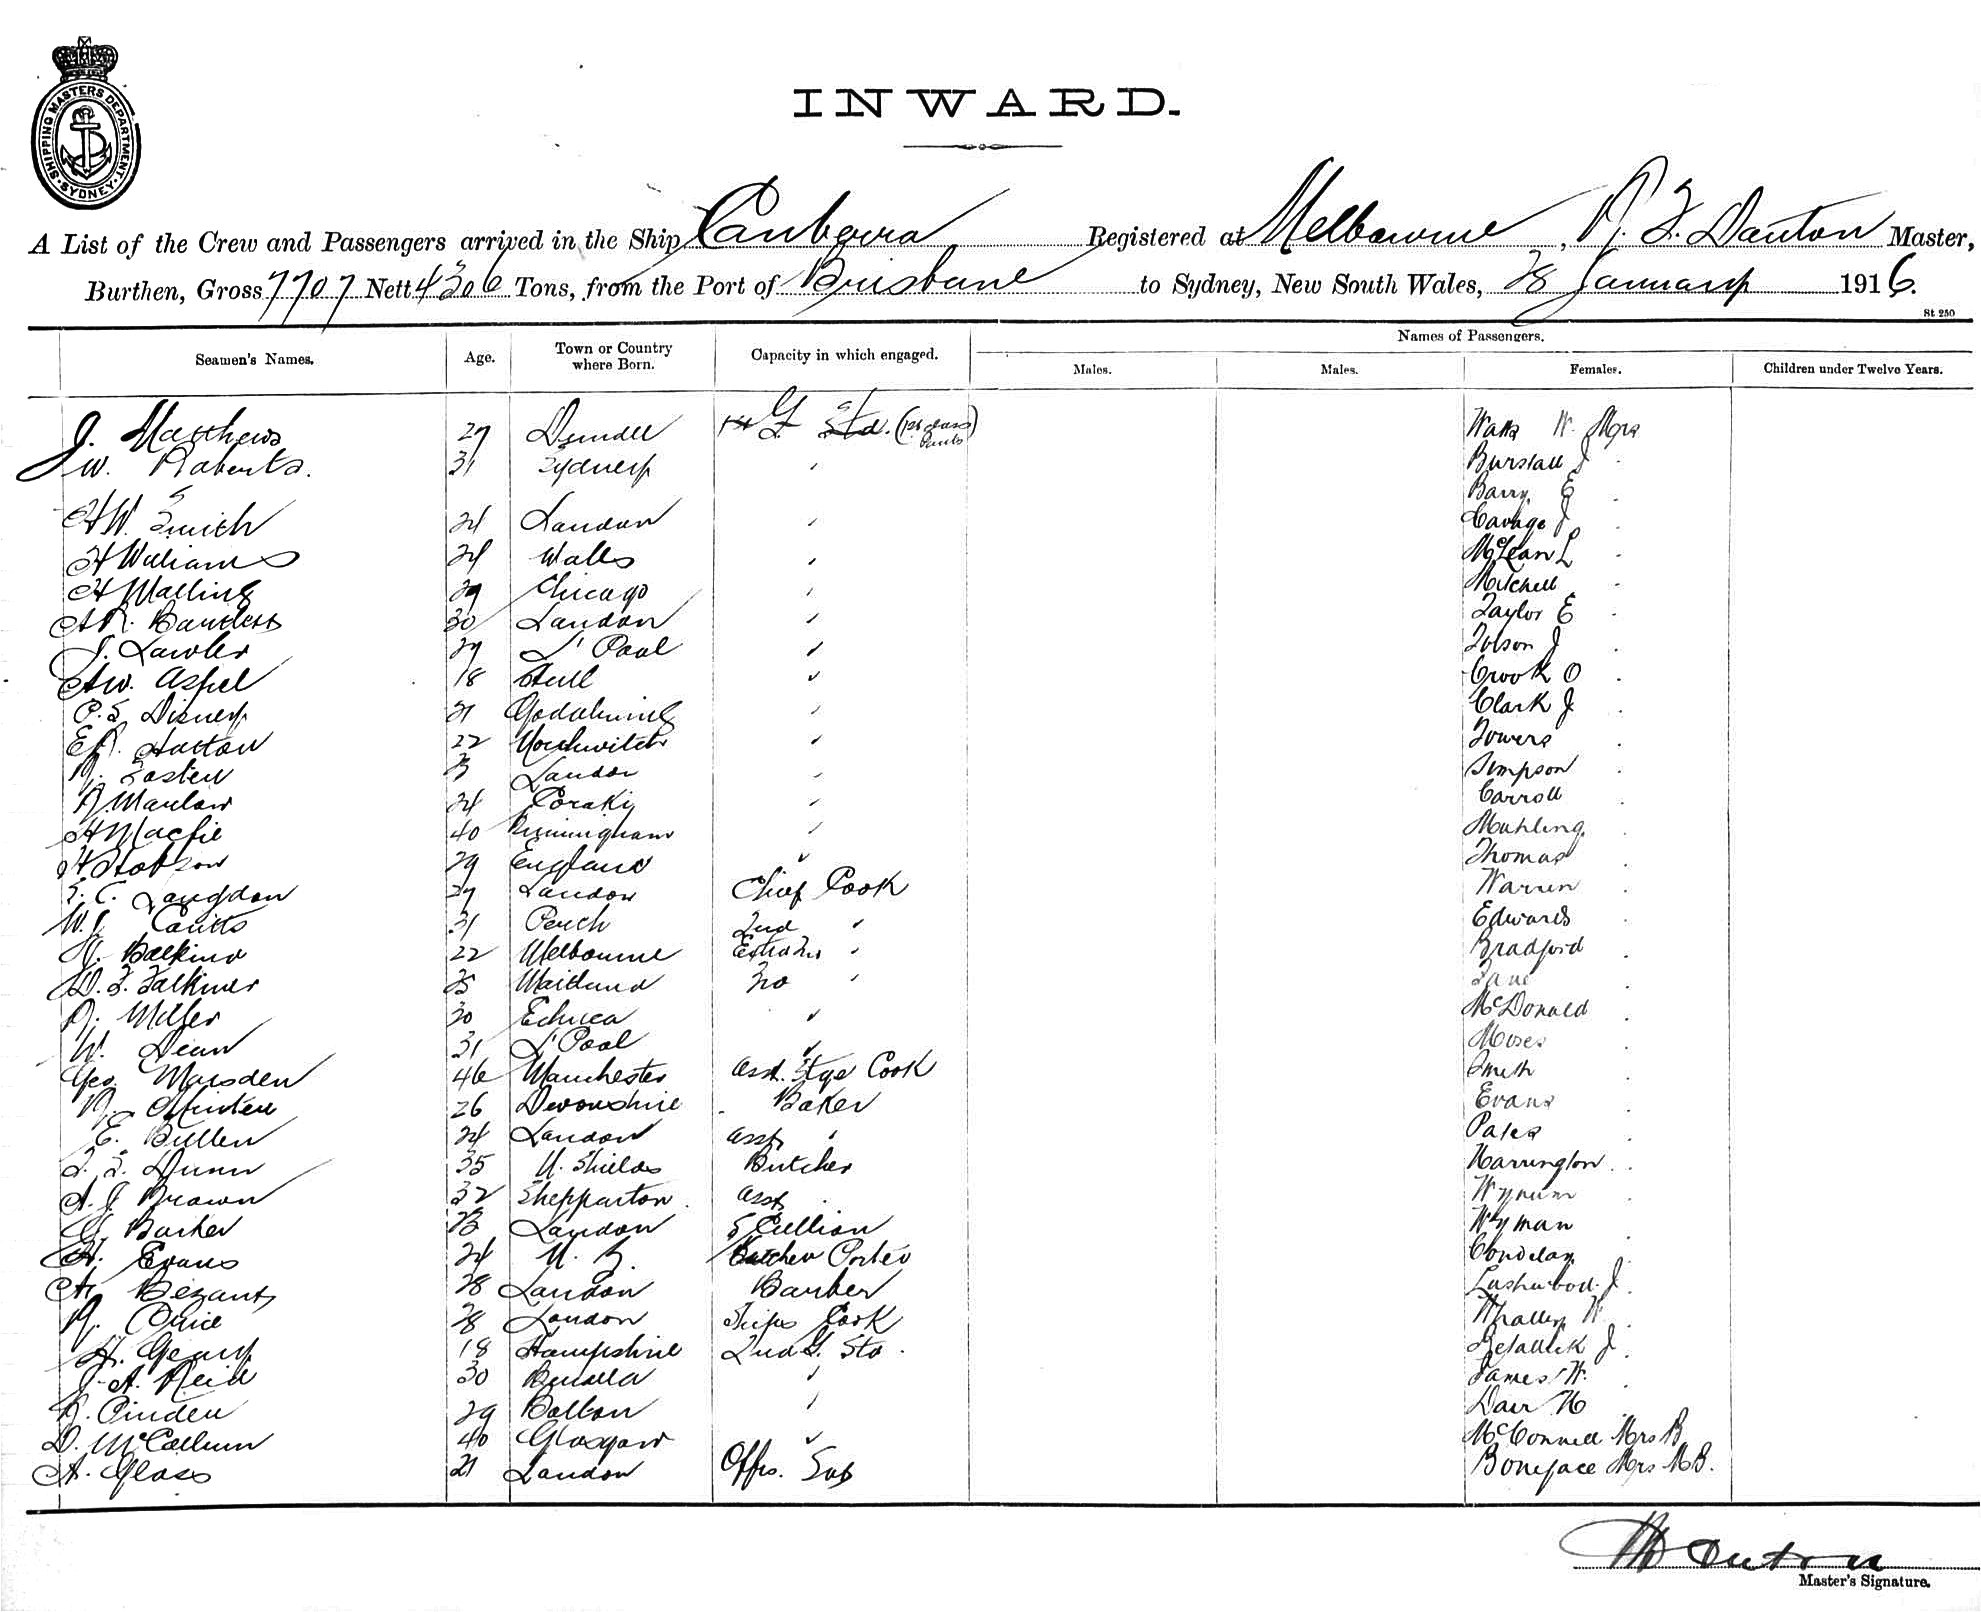 SHIPPING MASTERS DEPARTMENT
SYDNEY
INWARD.
A List of the Crew and Passengers arrived in the Ship Canberra Registered at Melbourne, Danton Master,
Burthen, Gross 7707 Nett 4306 Tons, from the Port of Brisbane to Sydney, New South Wales, 28 January 1916.
St 250
Seamen's Names. Age. Town or Country where Born. Capacity in which engaged. Names of Passengers.
Males. Males. Females. Children under Twelve Years.
J. Matthews 27 (1st class Watts W. Mrs
J W. Roberts. 31 Sydney Burstall J
Barry E
HW. Smith 24 London Cavage J
H Williams 24 Wales McLean L
H Malling 29 Chicago Mitchell
AR. 30 London Taylor E
J. Lawler 29 L'Pool Tolson J
AW. Aspel 18 Hull Crook O
P.S Disney 21 Godalming Clark J
ER. Hatton 22 Northwitch Towers
London Simpson
24 Coraki Carroll
H Macfie 40 Birmingham Muhling
H Hobson 29 England Thomas
Langdon 27 London Chief Cook Warren
W.J. Coutts 31 Perth 2nd " Edwards
22 Melbourne Extra 2nd " Bradford
Falkiner 25 Maitland 3rd "
R. Miller 30 Echuca McDonald
W. Dean 31 L'Pool Moses
Geo Marsden 46 Manchester Asst. Stge Cook Smith
26 Devonshire Baker Evans
E. Bullen 24 London Asst " Pates
Dunn 35 N. Shields Butcher Harrington
A. J Brown 32 Shepparton. Asst
Barker 23 London Scullion Wyman
H. Evans 24 N. Z. Butcher Porter Condelay
A. Bezant 28 London Barber
R. 28 London Ships Cook Whalley W
H. Geary 18 Hampshire 2nd G. Std. Retallick J
J. A. Reid 30 Benalla James W.
29 Bolton Dair H
D. McCallum 40 Glasgow McConnell Mrs B
A. Glass 21 London Offrs. Boniface Mrs M B.
Danton
Master's Signature.